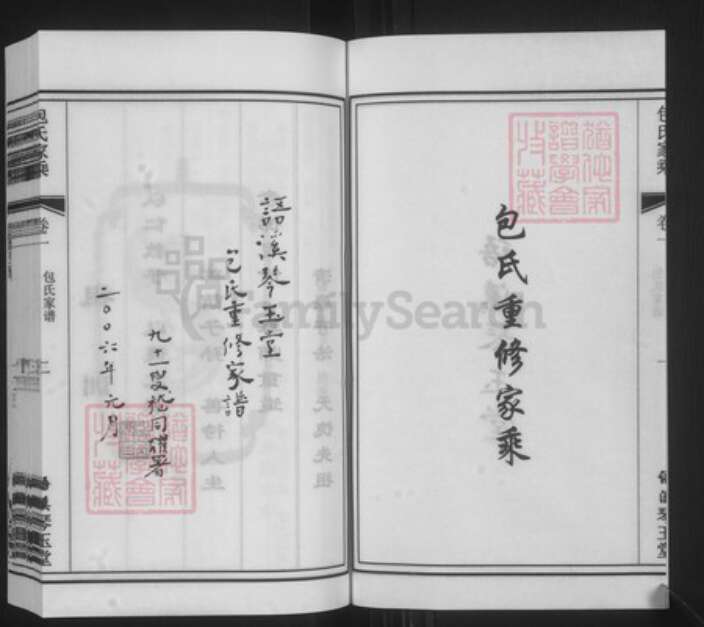 包氏重修家乘
猶他家
譜學會
特藏
包氏家乘
卷一
語溪琴玉堂
包氏重修家譜
九十一叟
同
署
二〇〇六年元月
猶他家
譜學會
特藏
包氏家乘
卷一
包氏家谱
琴玉堂
FamilySearch